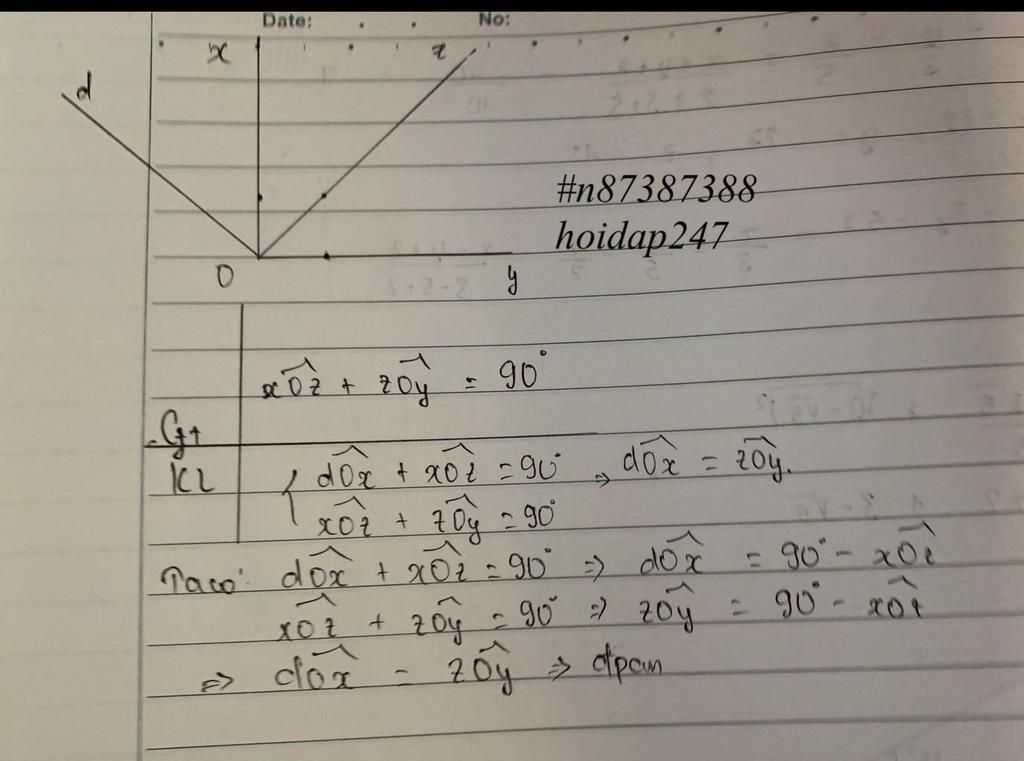 Date: No:
x z
d
#n87387388
hoidap247
O y
xOz + zOy = 90°
Gt
KL { dOx + xOz = 90° => dOx = zOy.
xOz + zOy = 90°
Ta có: dOx + xOz = 90° => dOx = 90° - xOz
xOz + zOy = 90° => zOy = 90° - xOz
=> dOx = zOy => dpcm